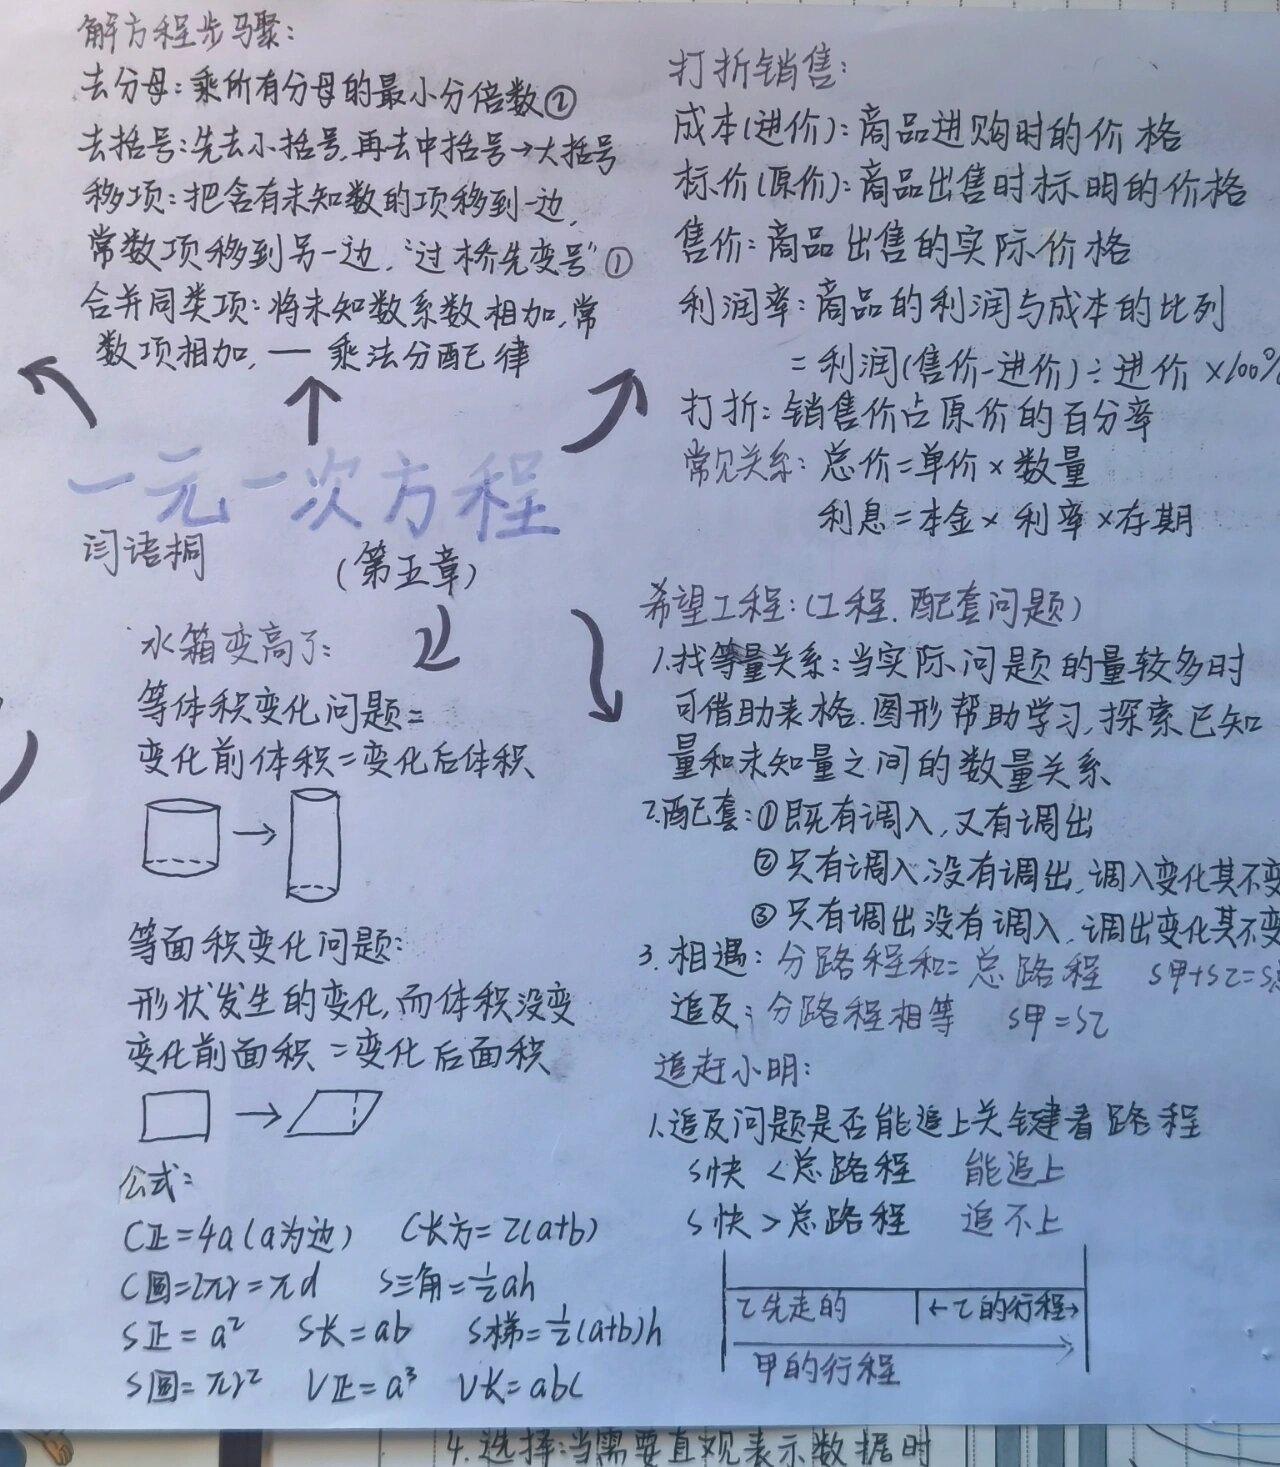 解方程步骤:
去分母:乘所有分母的最小分倍数②
去括号:先去小括号,再去中括号→大括号
移项:把含有未知数的项移到一边,
常数项移到另一边,“过桥先变号”①
合并同类项:将未知数系数相加,常
数项相加,— 乘法分配律
一元一次方程
闫语桐
(第五章)
水箱变高了:
等体积变化问题=
变化前体积=变化后体积
等面积变化问题:
形状发生的变化,而体积没变
变化前面积=变化后面积
公式:
C正=4a(a为边) C长方=2(a+b)
C圆=2πr=πd S三角=½ah
S正=a² S长=ab S梯=½(a+b)h
S圆=πr² V正=a³ V长=abc
打折销售:
成本(进价):商品进购时的价格
标价(原价):商品出售时标明的价格
售价:商品出售的实际价格
利润率:商品的利润与成本的比列
=利润(售价-进价)÷进价×100%
打折:销售价占原价的百分率
常见关系:总价=单价×数量
利息=本金×利率×存期
希望工程:(工程.配套问题)
1.找等量关系:当实际问题的量较多时
可借助表格.图形帮助学习,探索已知
量和未知量之间的数量关系
2.配套:①既有调入,又有调出
②只有调入,没有调出,调入变化其不变
③只有调出没有调入,调出变化其不变
3.相遇:分路程和=总路程 S甲+S乙=S总
追及:分路程相等 S甲=S乙
追赶小明:
1.追及问题是否能追上关键看路程
S快<总路程 能追上
S快>总路程 追不上
乙先走的 ←乙的行程→
甲的行程
4.选择:当需要直观表示数据时